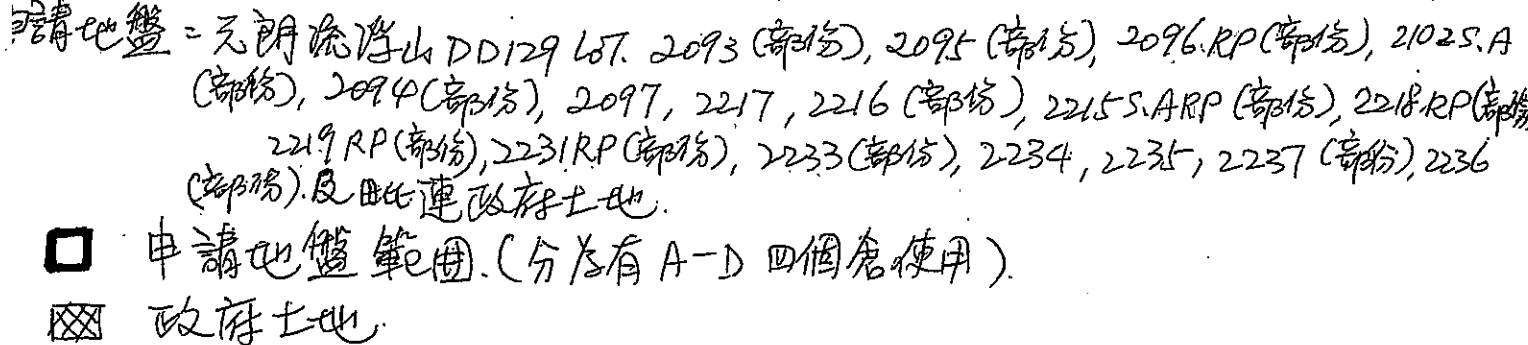 申請地盤 = 元朗流浮山 DD129 LOT. 2093 (部份), 2095 (部份), 2096.RP (部份), 2102 S.A
(部份), 2094 (部份), 2097, 2217, 2216 (部份), 2215 S.A RP (部份), 2218.RP (部份
2219 RP (部份), 2231 RP (部份), 2233 (部份), 2234, 2235, 2237 (部份), 2236
(部份). 及毗連政府土地.
申請地盤範圍. (分為有 A-D 四個倉使用).
政府土地.